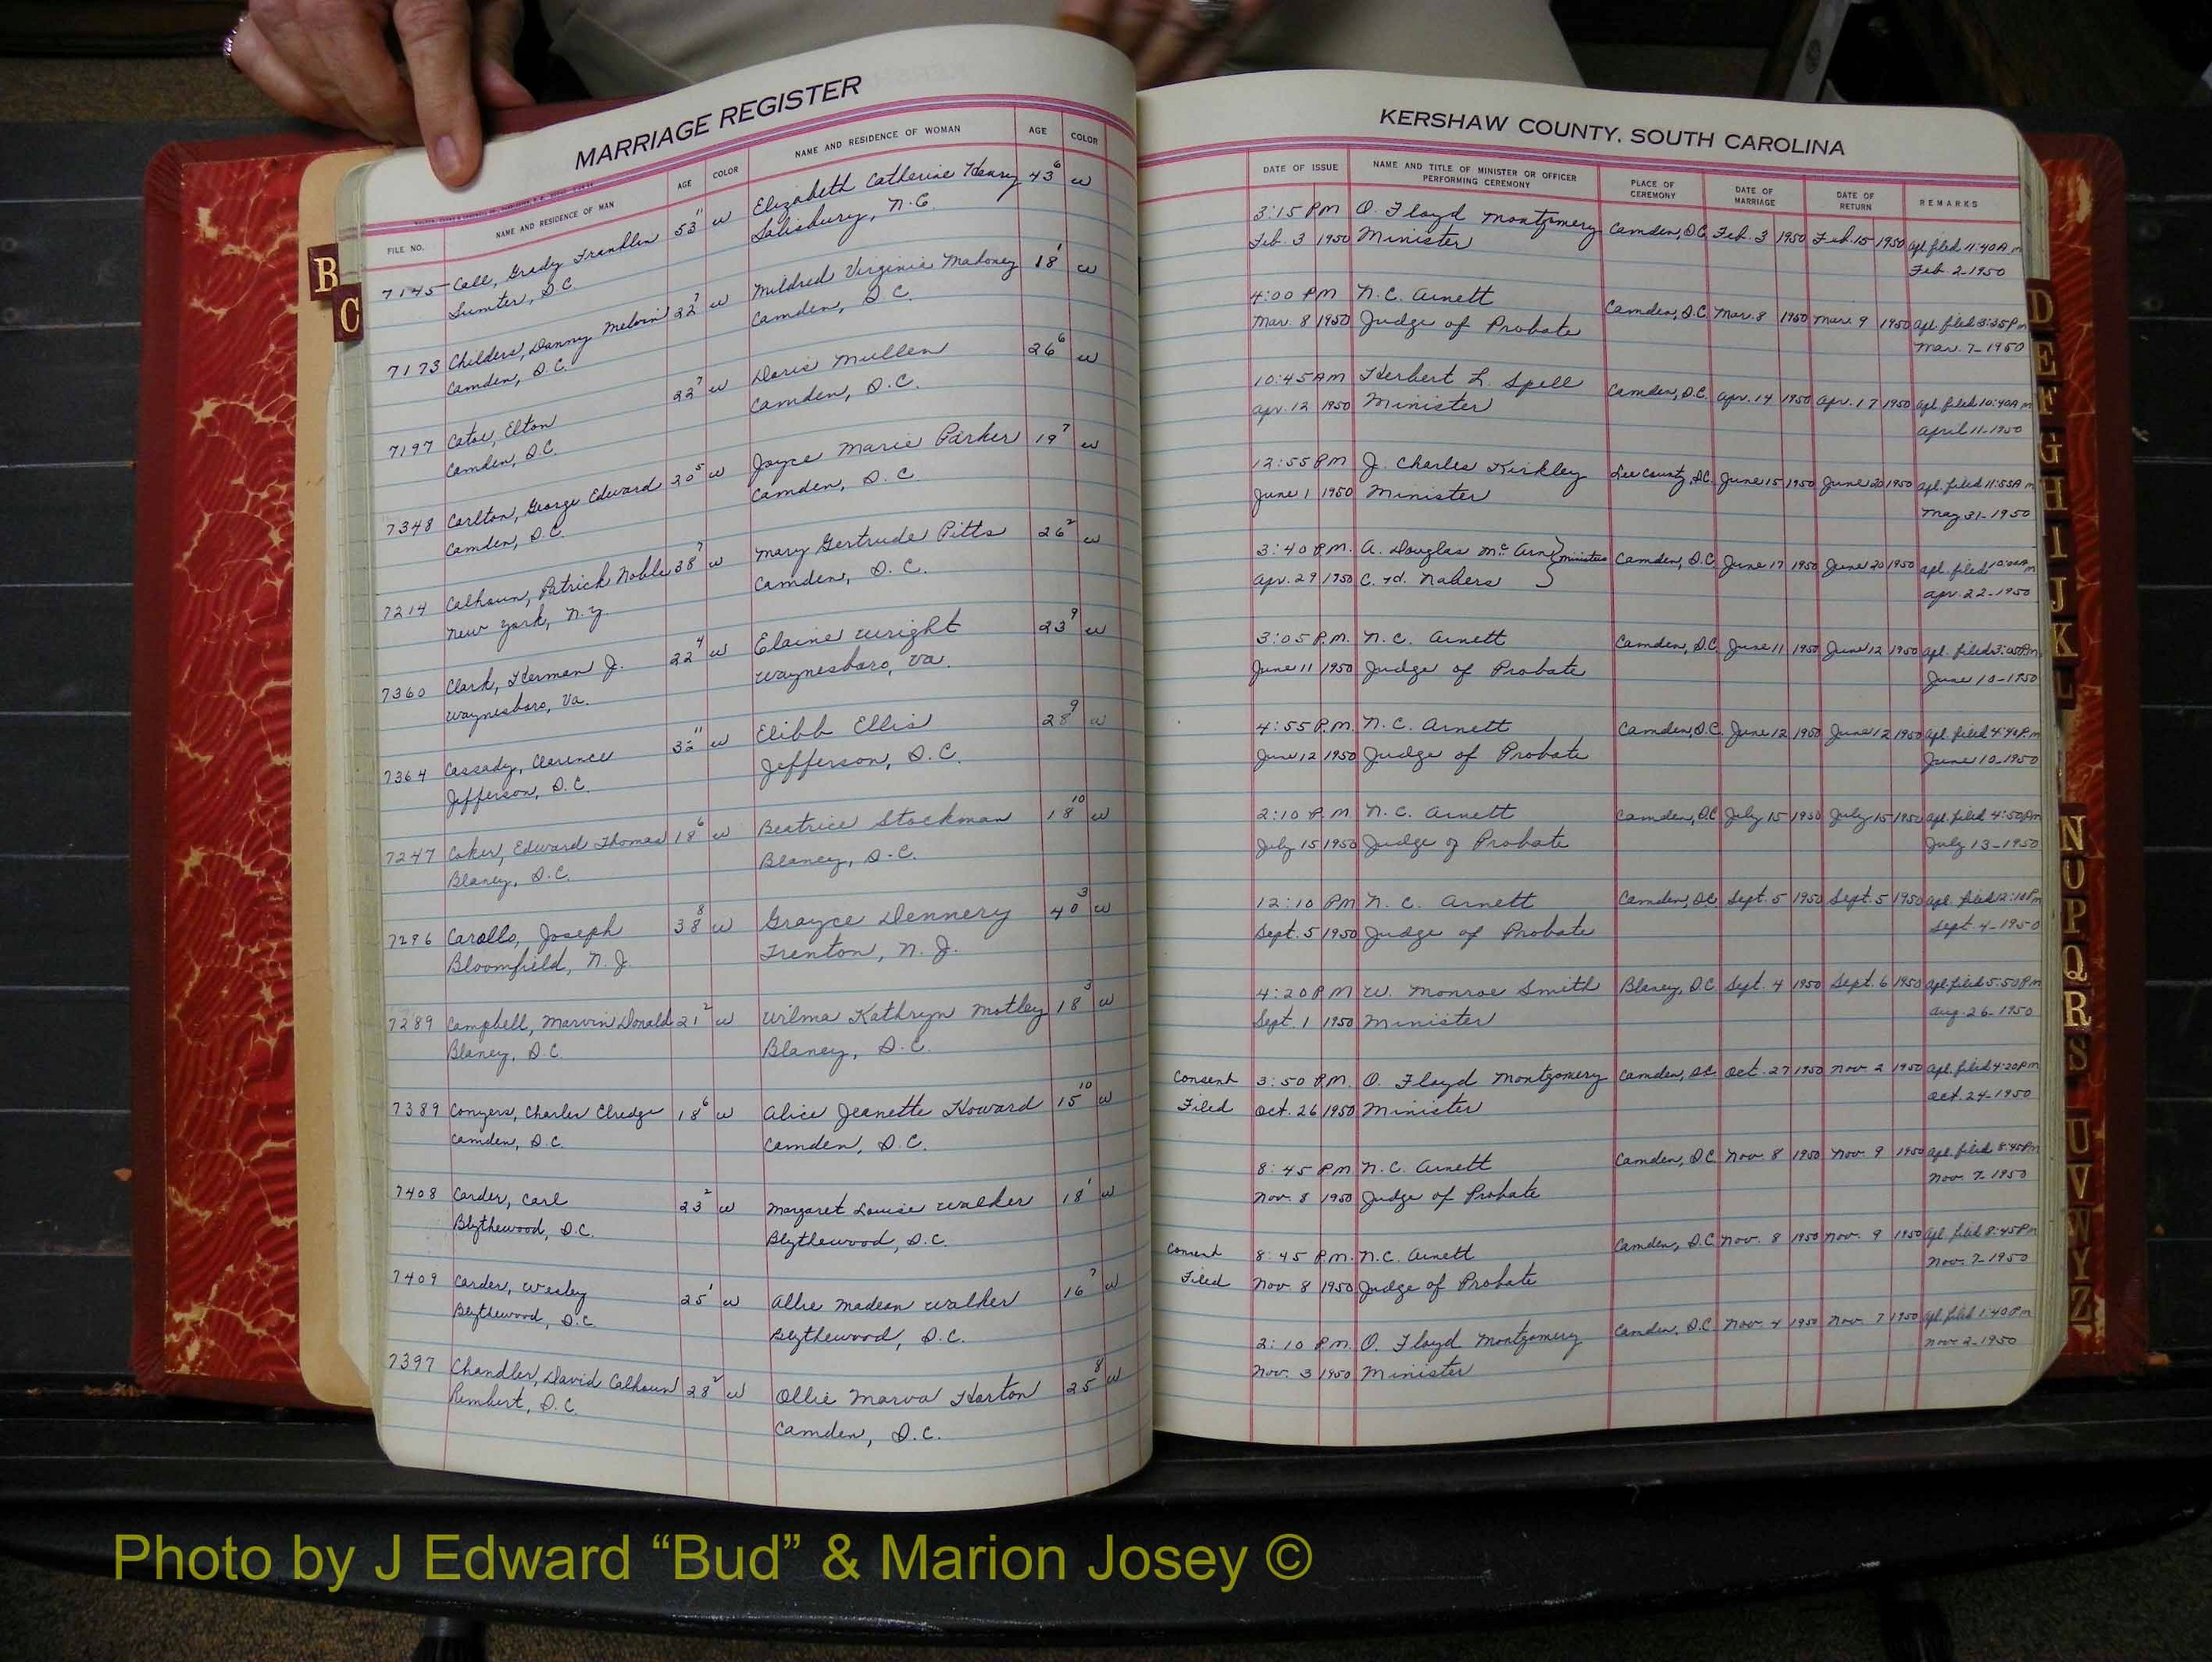 MARRIAGE REGISTER
FILE NO. NAME AND RESIDENCE OF MAN AGE COLOR NAME AND RESIDENCE OF WOMAN AGE COLOR
7145 Call, Grady Franklin 53 11 w Elizabeth Catherine Henry 43 6 w
Sumter, S.C. Salisbury, N.C.
7173 Childers, Danny Melvin 22 7 w Mildred Virginia Mahoney 18 1 w
Camden, S.C. Camden, S.C.
7197 Catoe, Elton 22 7 w Doris Mullen 26 6 w
Camden, S.C. Camden, S.C.
7348 Carlton, George Edward 20 5 w Joyce Marie Parker 19 7 w
Camden, S.C. Camden, S.C
7214 Calhoun, Patrick Noble 38 7 w Mary Gertrude Pitts 26 2 w
New York, N.Y. Camden, S.C.
7360 Clark, Herman J. 22 4 w Elaine Wright 23 9 w
Waynesboro, Va. Waynesboro, Va.
7364 Cassady, Clarence 32 11 w Elibb Ellis 28 9 w
Jefferson, S.C. Jefferson, S.C.
7247 Coker, Edward Thomas 18 6 w Beatrice Stockman 18 10 w
Blaney, S.C. Blaney, S.C.
7296 Carollo, Joseph 38 8 w Grayce Dennery 40 3 w
Bloomfield, N.J. Trenton, N.J.
7289 Campbell, Marvin Donald 21 2 w Wilma Kathryn Motley 18 3 w
Blaney, S.C. Blaney, S.C.
7389 Conyers, Charles Elredge 18 6 w Alice Jeanette Howard 15 10 w
Camden, S.C. Camden, S.C.
7408 Carder, Carl 23 2 w Margaret Louise Walker 18 1 w
Blythewood, S.C. Blythewood, S.C.
7409 Carder, Wesley 25 1 w Allie Madean Walker 16 7 w
Blythewood, S.C. Blythewood, S.C.
7397 Chandler, David Calhoun 28 2 w Ollie Marva Horton 25 8 w
Rembert, S.C. Camden, S.C.
KERSHAW COUNTY, SOUTH CAROLINA
DATE OF ISSUE NAME AND TITLE OF MINISTER OR OFFICER PERFORMING CEREMONY PLACE OF CEREMONY DATE OF MARRIAGE DATE OF RETURN REMARKS
3:15 PM O. Floyd Montgomery Camden, S.C. Feb. 3 1950 Feb. 15 1950 Apl. filed 11:40 A.M
Feb. 3 1950 Minister Feb. 2-1950
4:00 PM N.C. Arnett Camden, S.C. Mar. 8 1950 Mar. 9 1950 Apl. filed 3:35 Pm
Mar. 8 1950 Judge of Probate Mar. 7-1950
10:45 AM Herbert L. Spell Camden, S.C. Apr. 14 1950 Apr. 17 1950 Apl. filed 10:40 A m
Apr. 12 1950 Minister April 11-1950
12:55 PM J. Charles Kirkley Lee County, S.C. June 15 1950 June 20 1950 Apl. filed 11:55 A m
June 1 1950 Minister May 31-1950
3:40 P.M. A. Douglas Mc Arn Ministers Camden, S.C. June 17 1950 June 20 1950 Apl. filed 10:00 A m
Apr. 29 1950 C. H. Nabers Apr. 22-1950
3:05 P.M. N.C. Arnett Camden, S.C. June 11 1950 June 12 1950 Apl. filed 3:05 Pm
June 11 1950 Judge of Probate June 10-1950
4:55 P.M. N.C. Arnett Camden, S.C. June 12 1950 June 12 1950 Apl. filed 4:40 P.m
June 12 1950 Judge of Probate June 10-1950
2:10 P.M. N.C. Arnett Camden, S.C July 15 1950 July 15 1950 Apl. filed 4:50 Pm
July 15 1950 Judge of Probate July 13-1950
12:10 PM N.C. Arnett Camden, S.C Sept. 5 1950 Sept. 5 1950 Apl. filed 12:10 Pm
Sept. 5 1950 Judge of Probate Sept. 4-1950
4:20 P.M W. Monroe Smith Blaney, S.C Sept. 4 1950 Sept. 6 1950 Apl. filed 5:50 P.m
Sept. 1 1950 Minister Aug. 26-1950
Consent 3:50 P.M. O. Floyd Montgomery Camden, S.C Oct. 27 1950 Nov. 2 1950 Apl. filed 4:20 Pm
Filed Oct. 26 1950 Minister Oct. 24-1950
8:45 PM N.C. Arnett Camden, S.C Nov. 8 1950 Nov. 9 1950 Apl. filed 8:45 Pm
Nov. 8 1950 Judge of Probate Nov. 7-1950
Consent 8:45 P.M. N.C. Arnett Camden, S.C Nov. 8 1950 Nov. 9 1950 Apl. filed 8:45 Pm
Filed Nov. 8 1950 Judge of Probate Nov. 7-1950
2:10 P.M. O. Floyd Montgomery Camden, S.C Nov. 4 1950 Nov. 7 1950 Apl. filed 1:40 P.m
Nov. 3 1950 Minister Nov. 2-1950
B
C
D
E
F
G
H
I
J
K
L
N
O
P
Q
R
S
U
V
W
Y
Z
Photo by J Edward “Bud” & Marion Josey ©